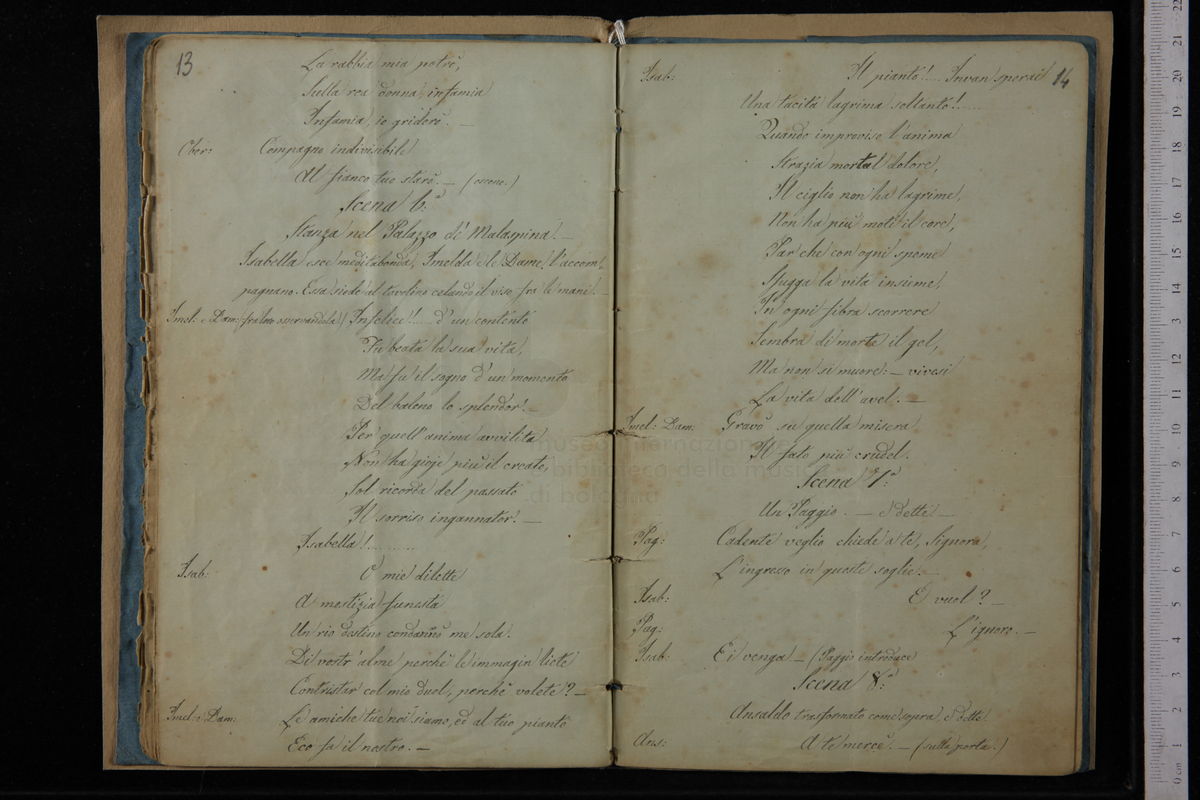 13
La rabbia mia potrè,
Sulla rea donna, infamia
Infamia, io griderò. —
Ober: Compagno indivisibile
Al fianco tuo starò. — (escono.)
Scena 6.ª
Stanza nel Palazzo di Malaspina. —
Isabella esce meditabonda, Imelda e le Dame l'accom-
pagnano. Essa siede al tavolino celando il viso fra le mani. —
Imel: e Dam: (fra loro osservandola) Infelice!.... d'un contento
Fu beata la sua vita,
Ma fu il sogno d'un momento
Del baleno lo splendor! —
Per quell'anima avvilita
Non ha gioje più il creato,
Sol ricorda del passato
Il sorriso ingannator! —
Isabella!..........
Isab: O mie dilette
A mestizia funesta
Un rio destino condannò me sola.
Di vostr'alme perchè le immagin liete
Contristar col mio duol, perchè volete? —
Imel: e Dam: Le amiche tue noi siamo, ed al tuo pianto
Eco fa il nostro. —
14
Isab: Il pianto!.... Invan sperai
Una tacita lagrima soltanto!.....
Quando improvviso l'anima
Strazia mortal dolore,
Il ciglio non ha lagrime,
Non ha più moti il core,
Par che con ogni speme
Sfugga la vita insieme,
In ogni fibra scorrere
Sembra di morte il gel,
Ma non si muore: — vivesi
La vita dell'avel. —
Imel: Dam: Gravò su quella misera
Il fato più crudel.
Scena 7.ª
Un Paggio. — e dette —
Pag: Cadente veglio chiede a te, Signora,
L'ingresso in queste soglie. —
Isab: E vuol? —
Pag: L'ignoro. —
Isab: Ei venga — (Paggio introduce
Scena 8.ª
Ansaldo trasformato come sopra, e dette.
Ans: A te mercè. — (sulla porta.)
museo internazionale
e biblioteca della musica
di bologna